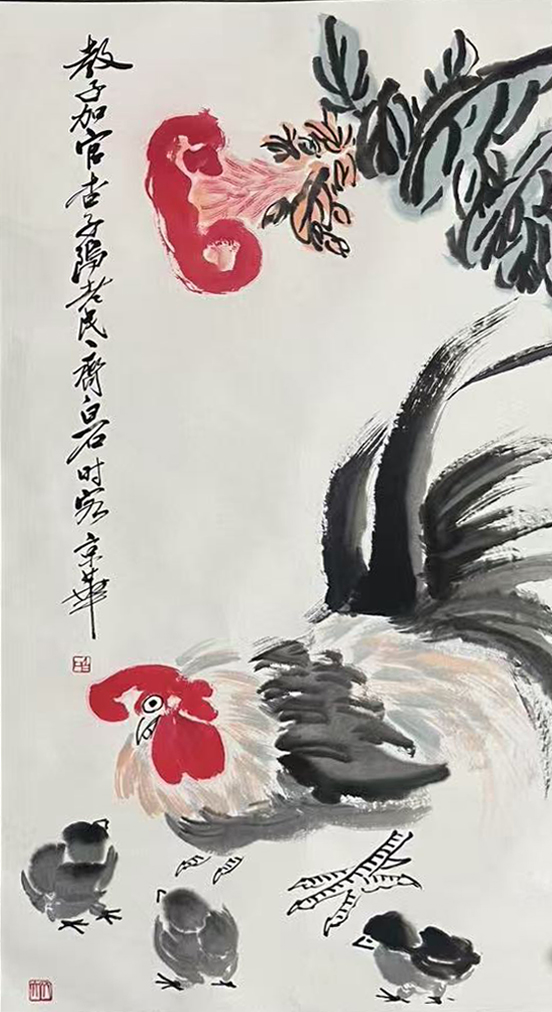 教子加官杏子隖老民齊白石时客京華